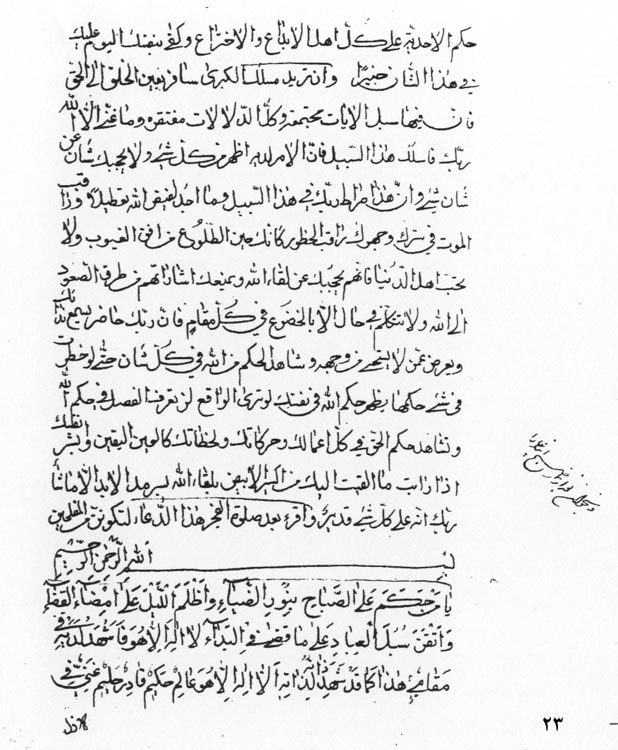 حكم الاحدية على كل اهل الابداع والاختراع وكفى بنفسك اليوم عليك
في هذا الشان خبيرا وان تريد مسلك الكبرى سافر بعين الخلق الى الحق
فان فيها سبل الايات مجتمعة وكل الدلالات مفتقره وما غنى الا الله
ربك فاسلك هذا السبيل فان الامر لديه اظهر من كل شئ ولا يحجبك شان عن
شان شئ وان هذا صراط ربك في هذا السبيل وما اجد لفيض الله تعطيلا
الموت في سرك وجهرك راقب الخطور كانك بعين الطلوع من افق الغيوب ولا
تحب اهل الدنيا فانهم يحجبك عن لقاء الله ويمنعك اشاراتهم من طرق الصعود
الى الله ولا تتكلم في حال الا بالخضوع في كل مقام فان ربك حاضر يسمع نداك
ويعرض عمن لا يستحي من وجهه وشاهد الحكم من الله في كل شان حتى لو خطرت
في شئ حكمها يظهر حكم الله في نفسك لو ترى الواقع لن تعرف الفصل في حكم الله
وتشاهد حكم الحق في كل اعمالك وحركاتك ولحظاتك كالعين اليقين وبشر
اذا رايت ما القيت اليك من اكبر الابيض بلقاء الله لسرمد الابد الا ما شاء
ربك انه على كل شئ قدير واقرء بعد صلوة الفجر هذا الدعاء لتكونن من المفلحين
بسم الله الرحمن الرحيم
يا من حكم على الصباح بنور الضياء واظلم الليل على امضاء القضاء
واتقن سبل العباد على ما قضى في البداء لا اله الا هو فاشهد لديه في
مقامي هذا كما قد شهد لذاته الا اله الا هو عالم حكيم قادر حليم غني في
٢٣